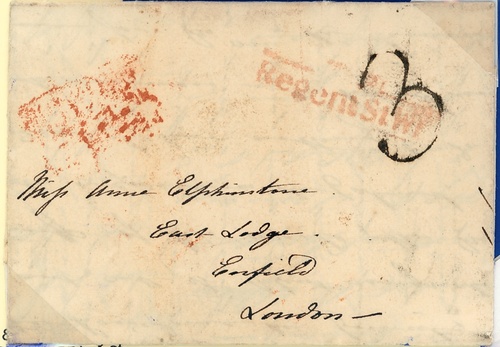 3
Regent St
Miss Anne Elphinstone.
East Lodge.
Enfield
London —